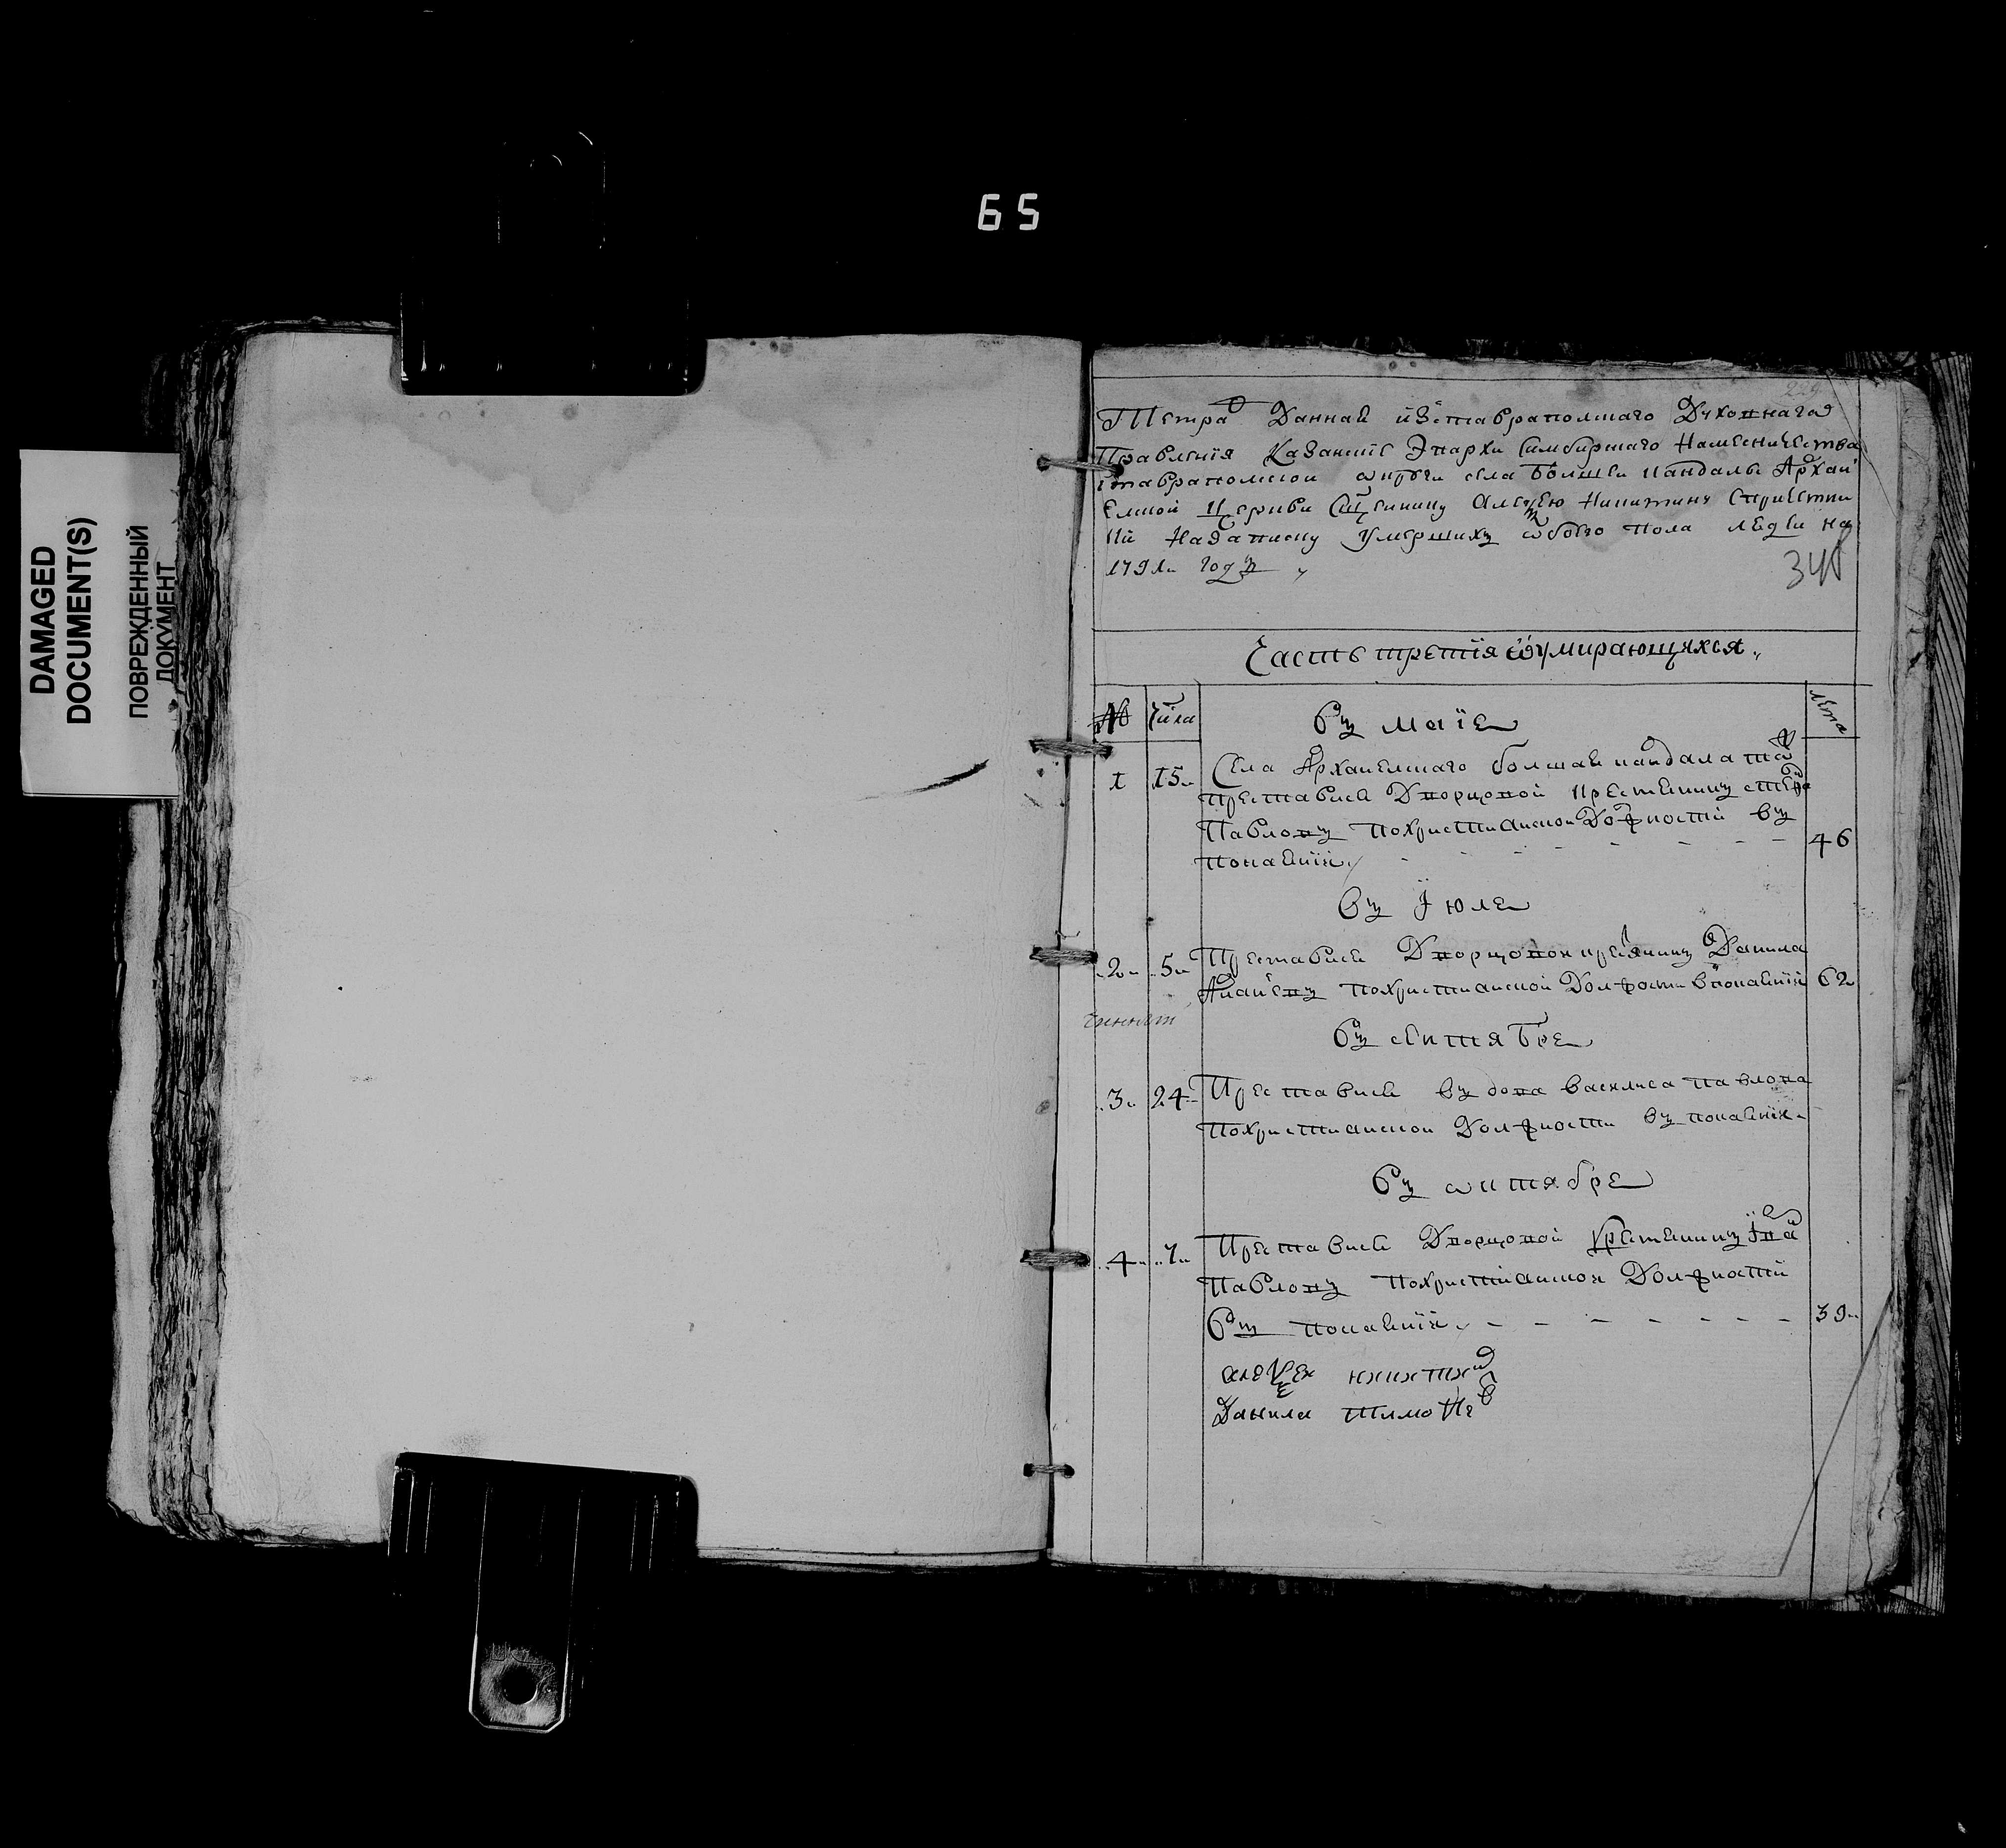 65
DAMAGED
DOCUMENT(S)
ПОВРЕЖДЕННЫЙ
ДОКУМЕНТ
229
Тетрад Данная изставраполскаго Духовнаго
Правления Казанские Эпархи Симбирскаго Намесничества
ставраполской округи села Болшеи кандалы Архан
елской Церкви Сщенику Алеѯею Никитину Спричетни
ки Надаписку Умершихъ обоего пола людеи на
1791м годъ
340
Часть третія ѡумирающихся
№
Числа
Въ маие
лета
1 15 Села Архангелскаго болшая кандала тож
преставися Дворцовой крестянинъ
Павловъ похристианской Должности въ
покаянии 46
Въ Июле
2 5 Преставися Дворцовои кресянинъ Данила
похристианской Должности впокаянии 62
Въ сентябре
3 24 Преставися вдова василиса павлова
похристианской Должности въ покаянии
Въ октябре
4 7 Преставися Дворцовой Крестянинъ Iван
Павловъ похристианской Должности
Въ покаянии 39
алеѯеи никитин
Данила тимофеев